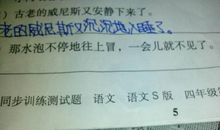 ）古老的威尼斯又安静下来了。
老的威尼斯又沉沉地入睡了。
）那水泡不停地往上冒，一会儿就不见了。
同步训练测试题 语文 语文S版 四年级
5